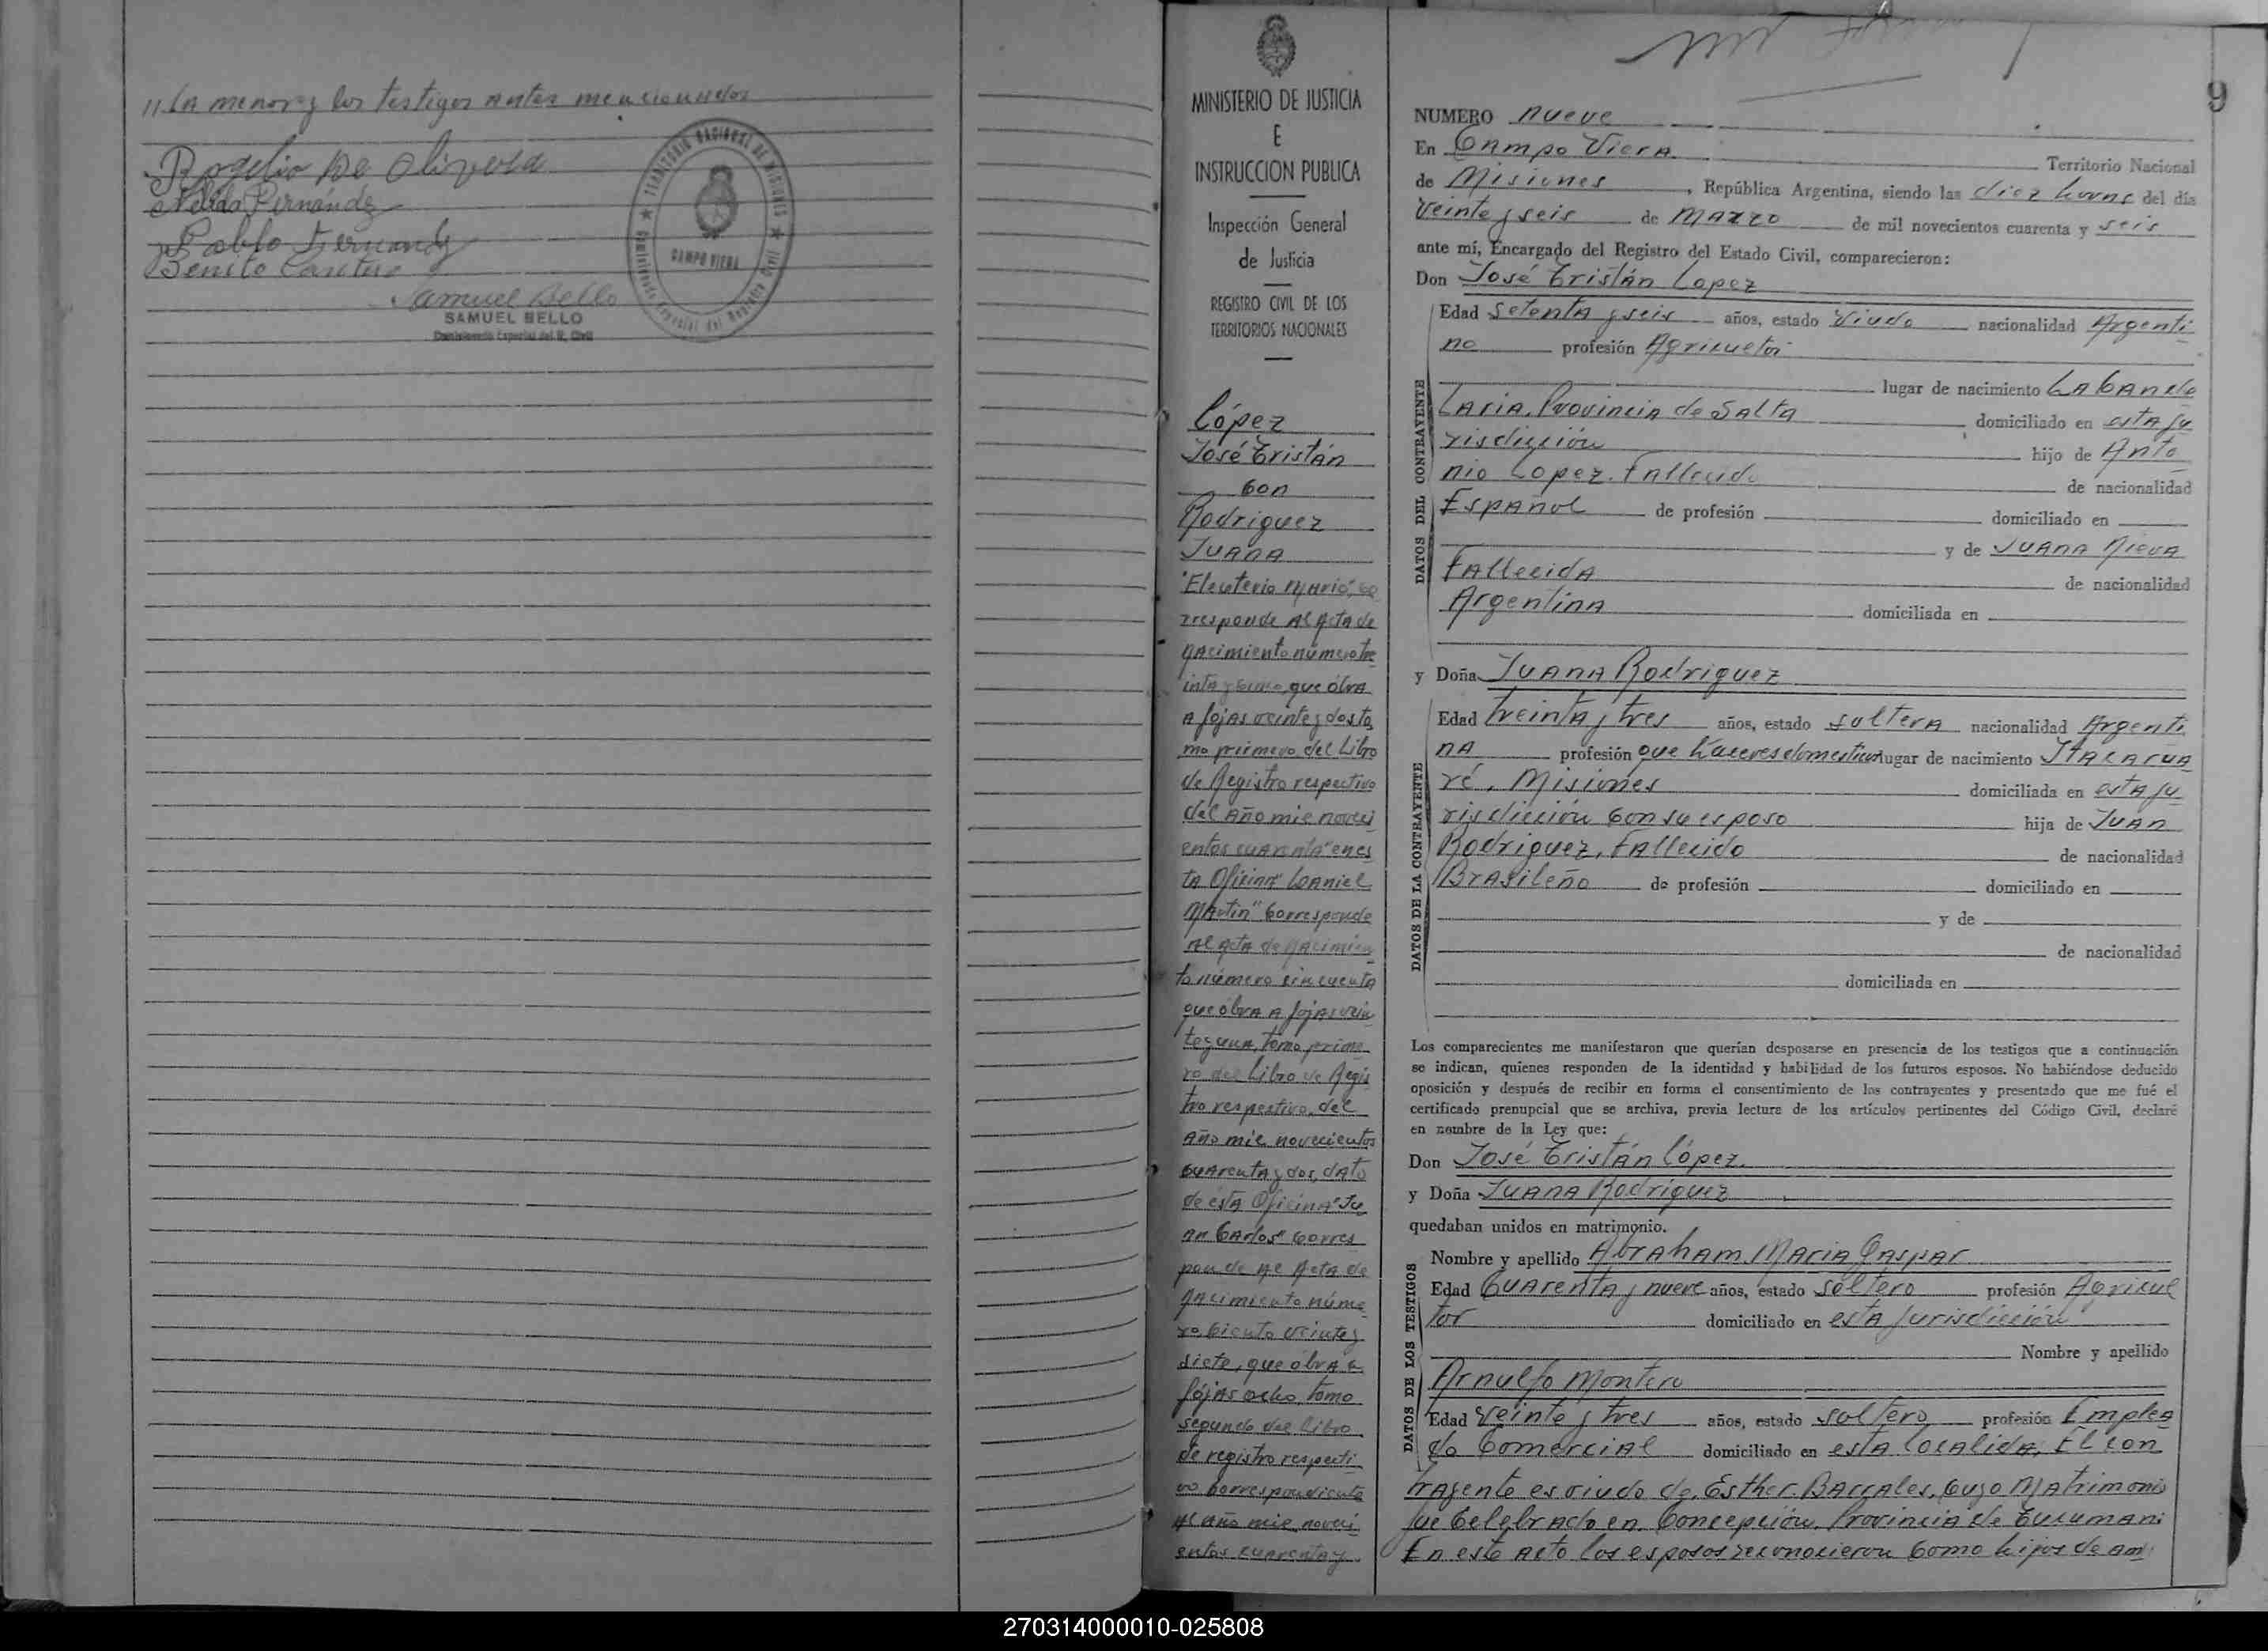 //. La menor y los testigos antes mencionados
Rogelio De Olivera
Nelida Fernández
Pablo Fernandez
Benito
Samuel Bello
SAMUEL BELLO
Comisionado Especial del R. Civil
TERRITORIO NACIONAL DE MISIONES
CAMPO VIERA
Comisionado Especial del Registro Civil
MINISTERIO DE JUSTICIA
E
INSTRUCCION PUBLICA
Inspección General
de Justicia
REGISTRO CIVIL DE LOS
TERRITORIOS NACIONALES
López
José Tristán
Con
Rodriguez
Juana
"Eleuterio Mario", co
rresponde al Acta de
Nacimiento número tre
inta y que obra
a fojas veinte y dos to
mo primero del Libro
de Registro respectivo
del Año mil noveci
entos cuarenta" en es
ta Oficina" Daniel
Martin" Corresponde
al Acta de Nacimien
to número cincuenta
que obra a fojas vein
te y una, tomo prime
ro del Libro de Regis
tro respectivo, del
Año mil novecientos
cuarenta y dos, dato
de esta Oficina" Ju
an Carlos" Corres
ponde al Acta de
Nacimiento núme
ro Ciento veinte y
siete, que obra a
fojas ocho, tomo
segundo del Libro
de registro respecti
vo Correspondiente
al año mil noveci
entos cuarenta y
9
NUMERO nueve
En Campo Viera Territorio Nacional
de Misiones, República Argentina, siendo las diez horas del día
veinte y seis de Marzo de mil novecientos cuarenta y seis
ante mí, Encargado del Registro del Estado Civil, comparecieron:
Don José Tristán Lopez
DATOS DEL CONTRAYENTE
Edad setenta y seis años, estado Viudo nacionalidad Argenti
no profesión Agricultor
lugar de nacimiento La Cande
laria, Provincia de Salta domiciliado en esta ju
risdicción hijo de Anto
nio Lopez. Fallecido de nacionalidad
Español de profesión domiciliado en
y de Juana Nieva
Fallecida de nacionalidad
Argentina domiciliada en
y Doña Juana Rodriguez
DATOS DE LA CONTRAYENTE
Edad treinta y tres años, estado soltera nacionalidad Argenti
na profesión que haceres domesticos lugar de nacimiento Itacarua
ré, Misiones domiciliada en esta ju
risdicción con su esposo hija de Juan
Rodriguez, Fallecido de nacionalidad
Brasileño de profesión domiciliado en
y de
de nacionalidad
domiciliada en
Los comparecientes me manifestaron que querían desposarse en presencia de los testigos que a continuación
se indican, quienes responden de la identidad y habilidad de los futuros esposos. No habiéndose deducido
oposición y después de recibir en forma el consentimiento de los contrayentes y presentado que me fué el
certificado prenupcial que se archiva, previa lectura de los artículos pertinentes del Código Civil, declaré
en nombre de la Ley que:
Don José Tristán López.
y Doña Juana Rodriguez
quedaban unidos en matrimonio.
DATOS DE LOS TESTIGOS
Nombre y apellido Abraham Maria Gaspar
Edad Cuarenta y nueve años, estado soltero profesión Agricul
tor domiciliado en esta jurisdicción
Nombre y apellido
Arnulfo Montero
Edad veinte y tres años, estado soltero profesión Emplea
do Comercial domiciliado en esta localida, El con
trayente es viudo de, Esther Barrales, cuyo Matrimonio
fue Celebrado en Concepción, Provincia de Tucuman;
En este acto los esposos reconocieron Como hijos de am
270314000010-025808